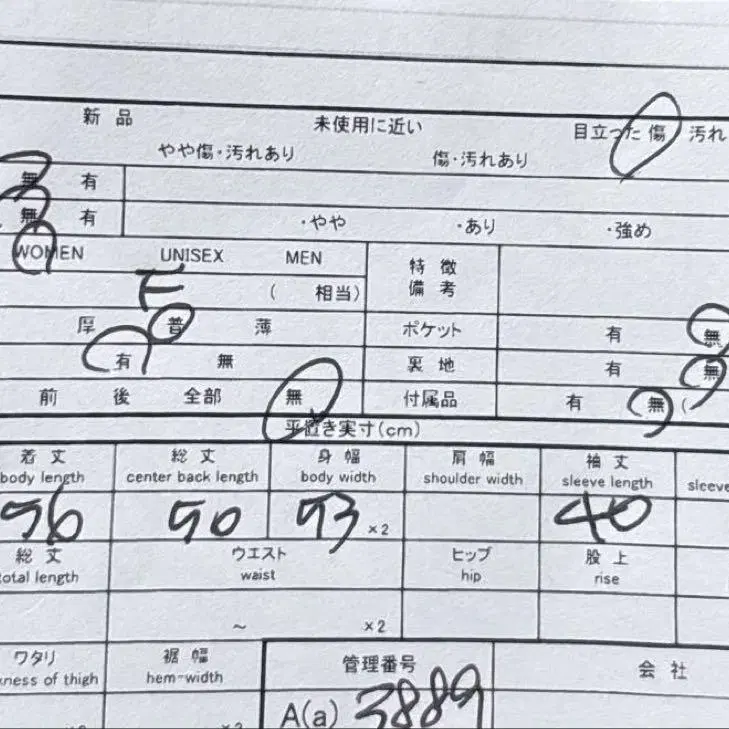 新品 未使用に近い 目立った傷 汚れ
やや傷・汚れあり 傷・汚れあり
無 有
無 有 ・やや ・あり ・強め
WOMEN UNISEX MEN 特徴
備考
F ( 相当)
厚 普 薄 ポケット 有 無
有 無 裏地 有 無
前 後 全部 無 付属品 有 無 (
平置き実寸(cm)
着丈 総丈 身幅 肩幅 袖丈
body length center back length body width shoulder width sleeve length sleeve
56 50 53 ×2 40
総丈 ウエスト ヒップ 股上
total length waist hip rise
~ ×2
ワタリ 裾幅 管理番号 会社
kness of thigh hem-width
A(a) 3889